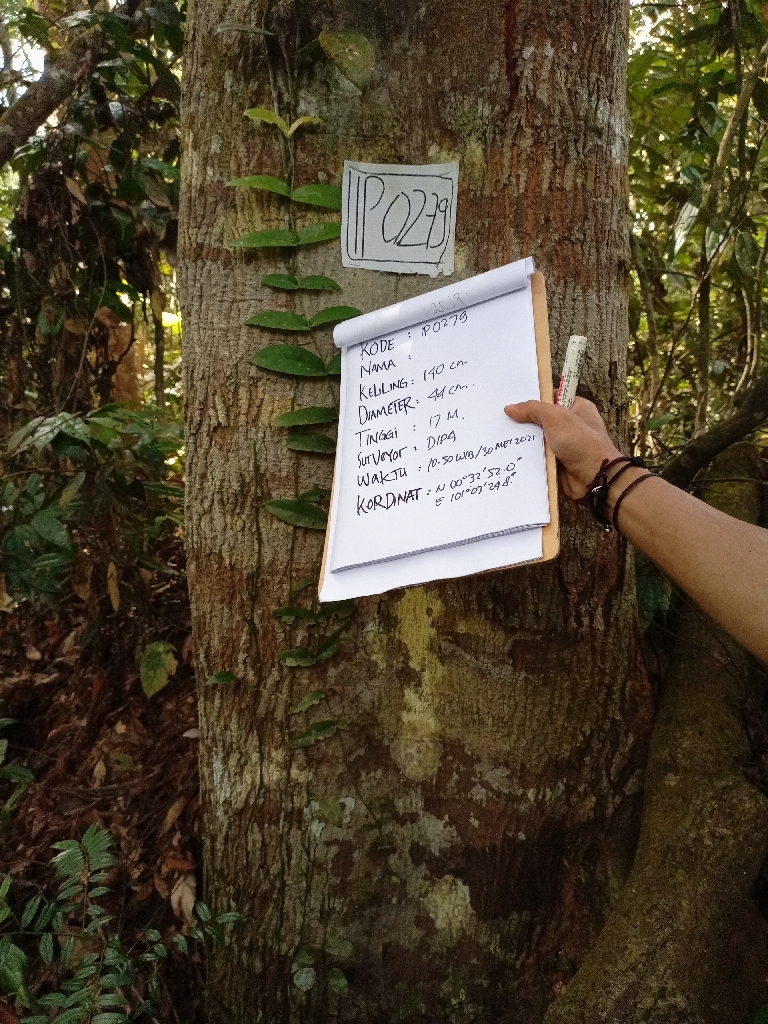 IP0279
KODE : IP0279
NAMA :
KELILING : 140 cm
DIAMETER : 44 cm.
TINGGI : 17 M.
SURVEYOR : DIPA
WAKTU : 10.50 WIB/30 MEI 2021
KORDINAT : N 00°32'52.0"
E 101°03'24.8"